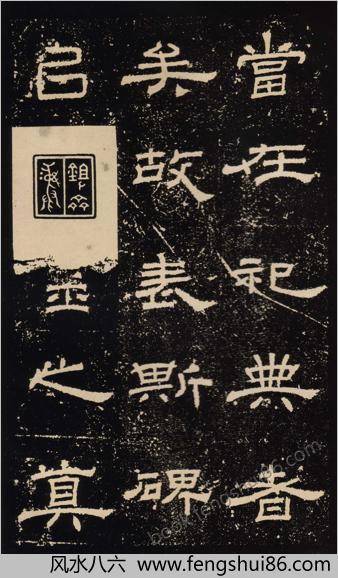 當在祀典者
矣故表斯碑
㠯之真
风水八六 www.fengshui86.com